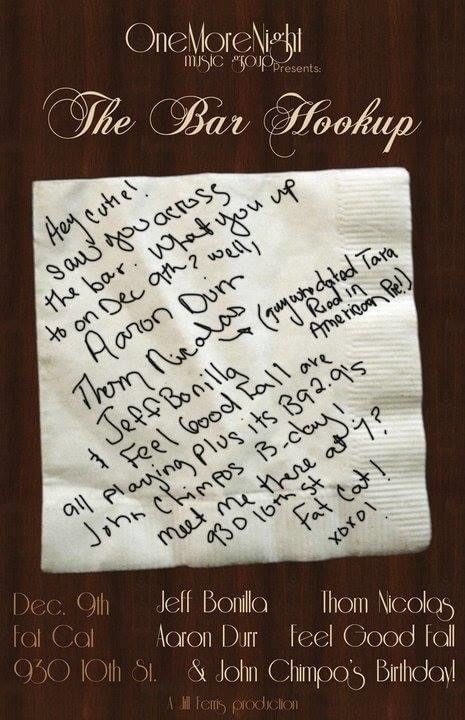 OneMoreNight
music group
Presents:
The Bar Hookup
Hey cutie!
Saw you across
the bar. What you up
to on Dec 9th? Well,
Aaron Durr
Thom Nicolas
(guy who dated Tara
Reid in
American Pie!)
Jeff Bonilla
+ Feel Good Fall are
all playing plus its B92.9's
John Chimpos B-day!
meet me there at 7?
930 10th St
Fat Cat!
xoxo!
Dec. 9th
Fat Cat
930 10th St.
Jeff Bonilla Thom Nicolas
Aaron Durr Feel Good Fall
& John Chimpo's Birthday!
A Jill Ferris production